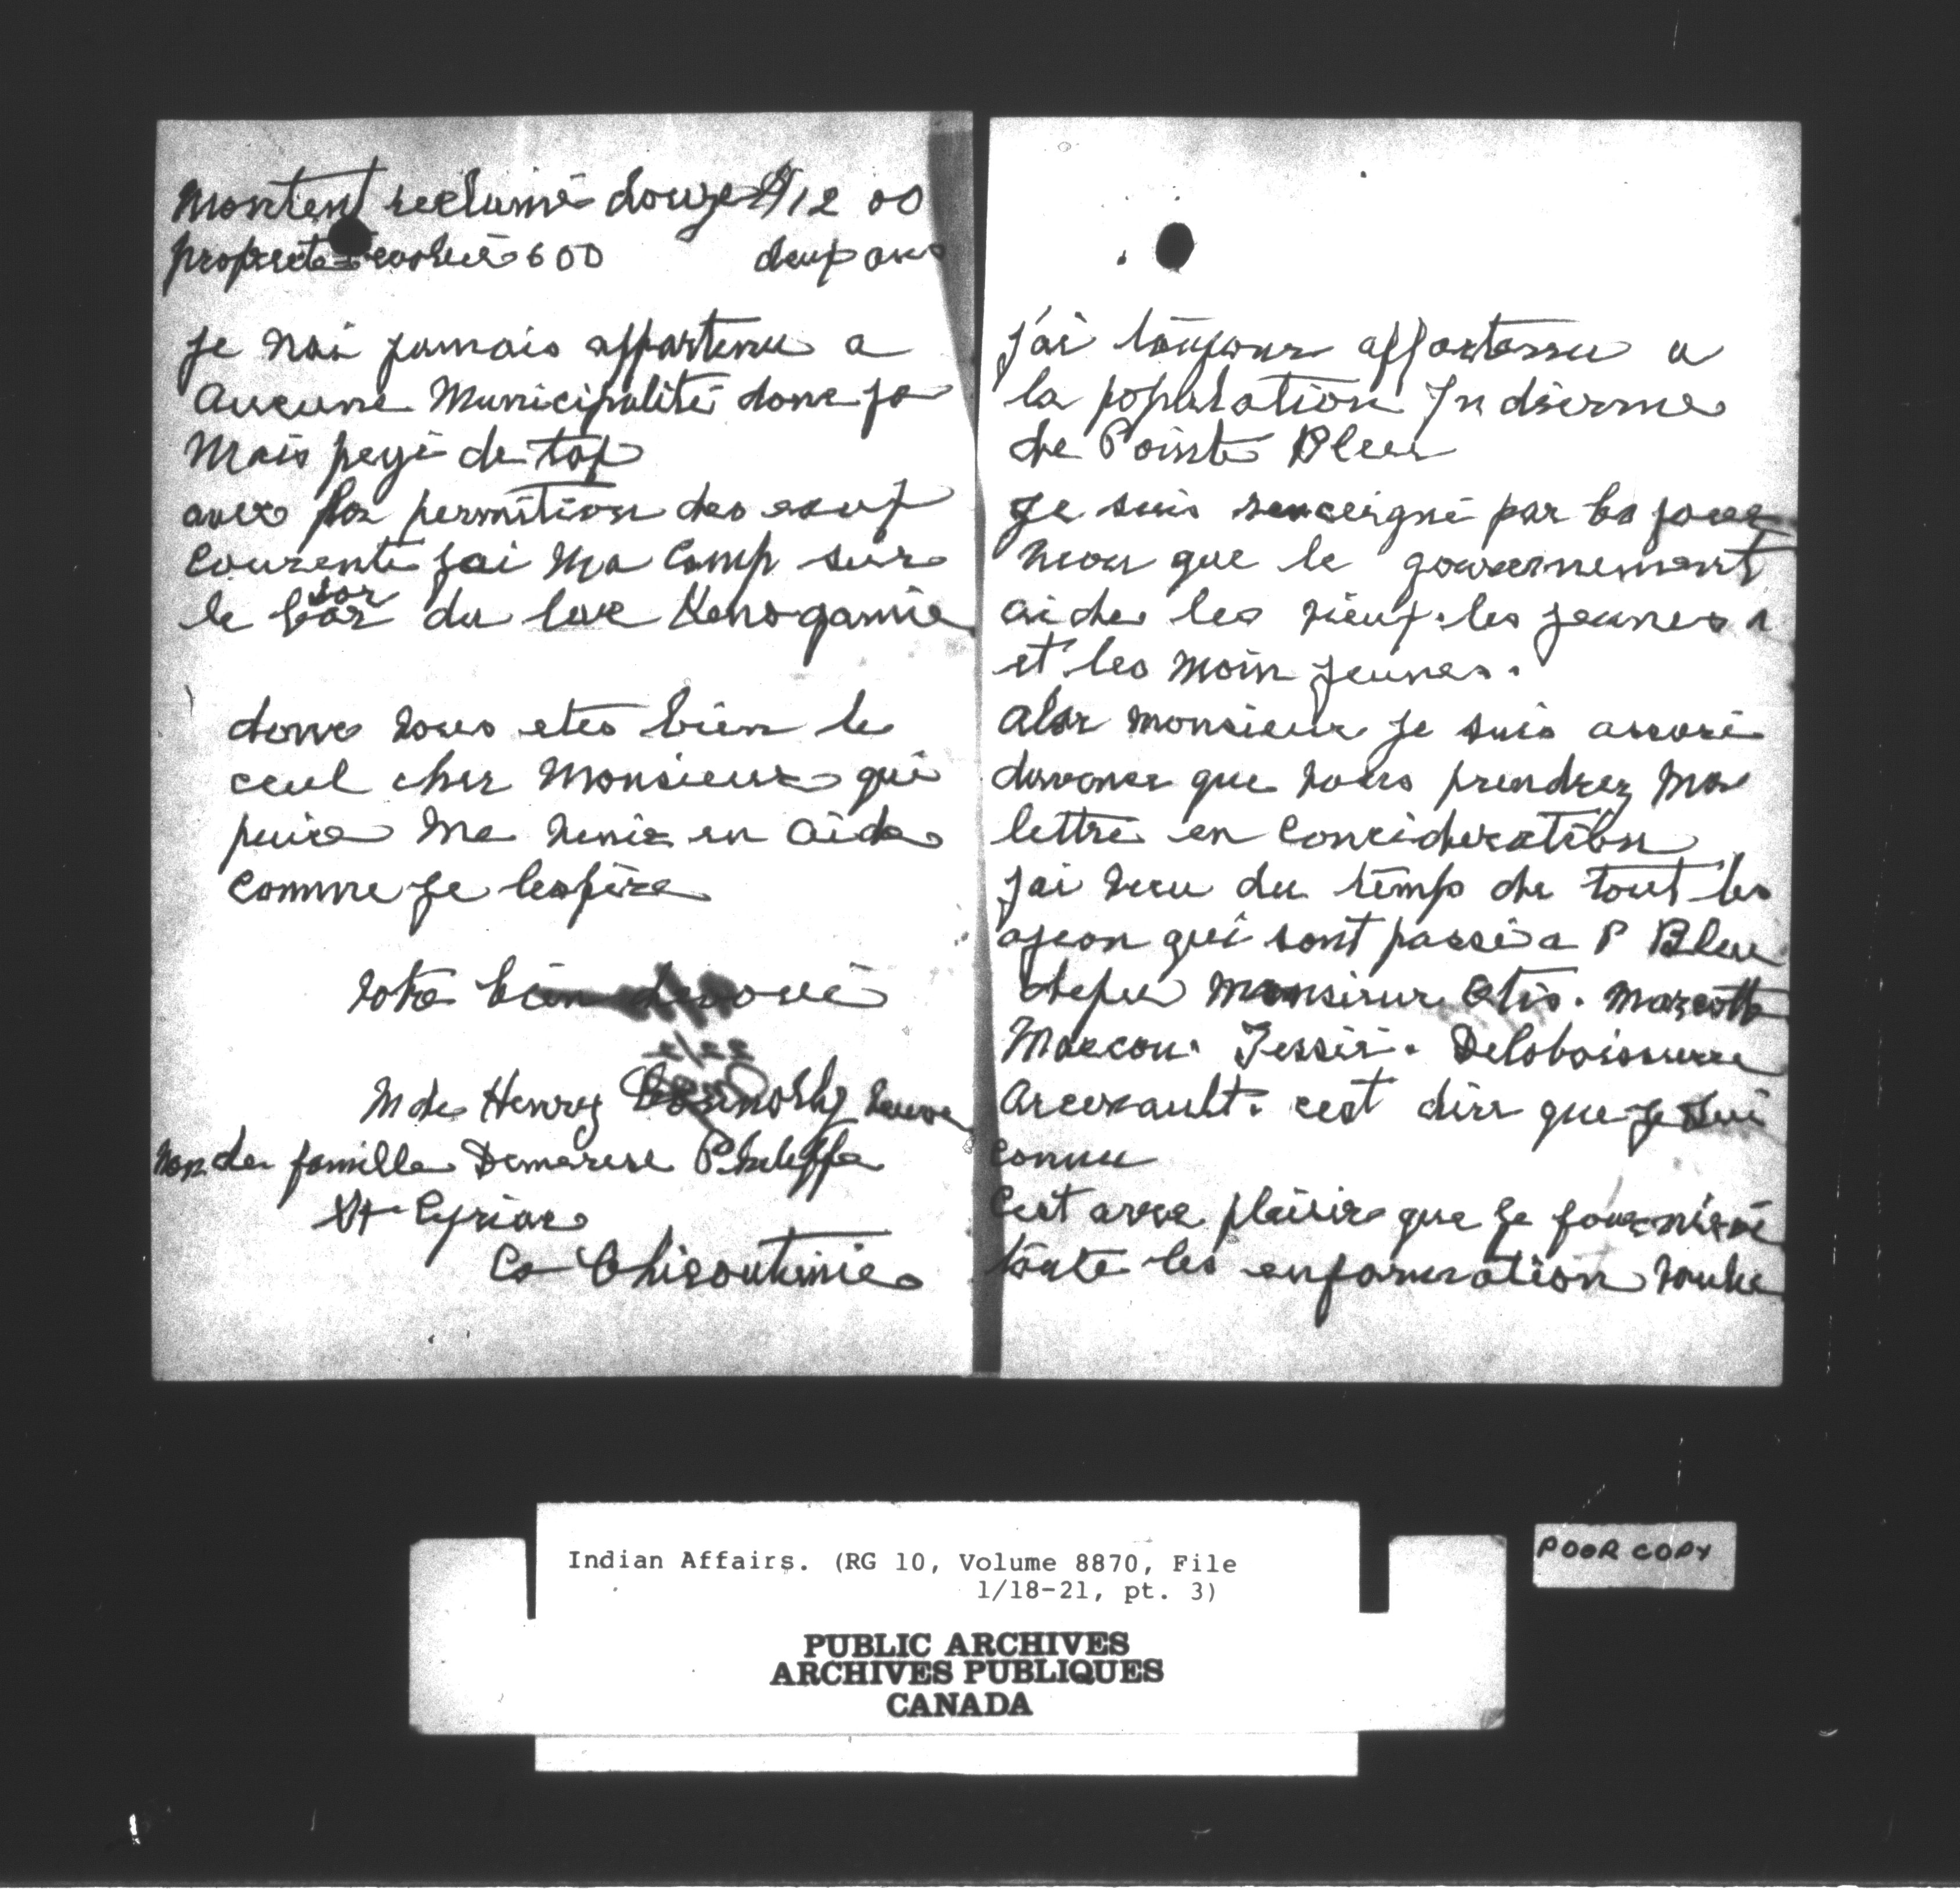 Montent reclumé douze $12 00
propriete evolué 600 deux ans
je nai jamais appartenu a
Aucune Municipalité donc ja
Mais peyé de tax
avec la permition des eaux
Courente jai ma Camp sur
le bor du lac Kenogamie
bor
donc vous etes bien le
ceul cher Monsieur qui
puice me venir en aide
comme je lespère
votre bien devoué
Mde Henry veuve
Non de famille Demarese
St Cyriac
Co Chicoutimie
j'ai toujour appartenu a
la population Indienne
de Pointe Bleu
je suis renceigné par les jour
neau que le gouvernement
aide les vieux. les jeunes
et les moin jeunes.
alor monsieur je suis assuré
davance que vous prendrez ma
lettre en conciderâtion
jai vecu du temps de tout les
ajean qui sont passé a P Bleu
depui monsieur Otis. Marcotte
Marcou. Tessié. Delaboissiere
Arcenault. cest dire que je sui
connu
Cest avec plaisir que je fournirai
toute les enformation voulue
Indian Affairs. (RG 10, Volume 8870, File
1/18-21, pt. 3)
POOR COPY
PUBLIC ARCHIVES
ARCHIVES PUBLIQUES
CANADA